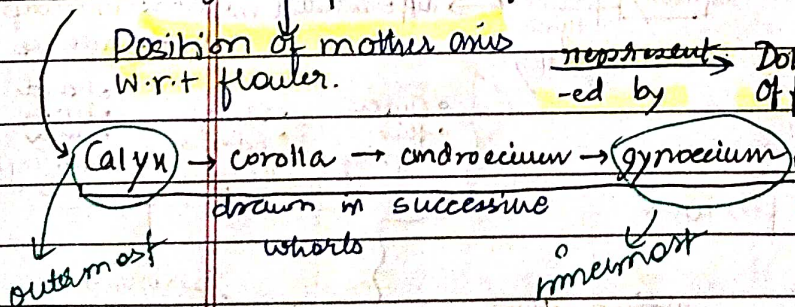 Position of mother axis
w.r.t flower.
represent
-ed by
Of
Calyx → corolla → androecium → gynoecium
drawn in successive
whorls
outermost
innermost